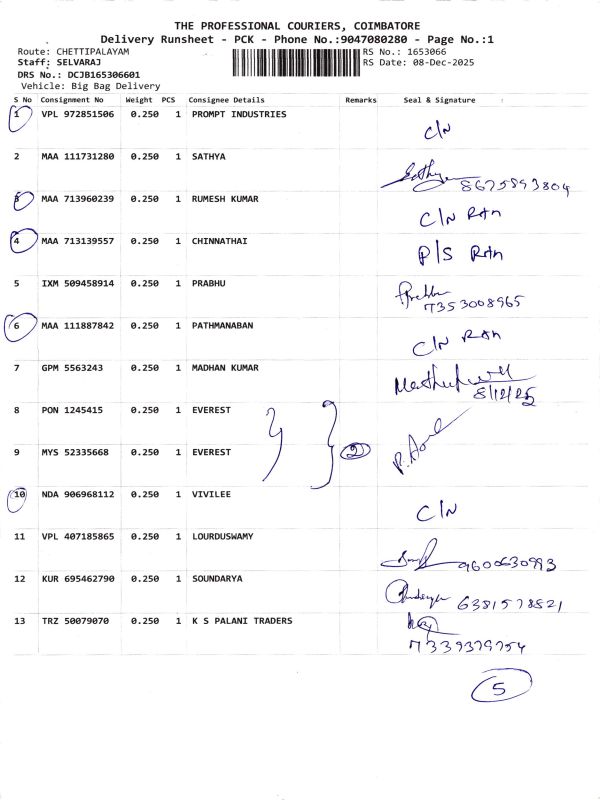 THE PROFESSIONAL COURIERS, COIMBATORE
Delivery Runsheet - PCK - Phone No.:9047080280 - Page No.:1
Route: CHETTIPALAYAM RS No.: 1653066
Staff: SELVARAJ RS Date: 08-Dec-2025
DRS No.: DCJB165306601
Vehicle: Big Bag Delivery
S No Consignment No Weight PCS Consignee Details Remarks Seal & Signature
1 VPL 972851506 0.250 1 PROMPT INDUSTRIES C/N
2 MAA 111731280 0.250 1 SATHYA Sathya 8675893804
3 MAA 713960239 0.250 1 RUMESH KUMAR C/N
4 MAA 713139557 0.250 1 CHINNATHAI P/S
5 IXM 509458914 0.250 1 PRABHU 7353008965
6 MAA 111887842 0.250 1 PATHMANABAN C/N
7 GPM 5563243 0.250 1 MADHAN KUMAR 8/12/25
8 PON 1245415 0.250 1 EVEREST
9 MYS 52335668 0.250 1 EVEREST 2
10 NDA 906968112 0.250 1 VIVILEE C/N
11 VPL 407185865 0.250 1 LOURDUSWAMY 9600630993
12 KUR 695462790 0.250 1 SOUNDARYA 6381578821
13 TRZ 50079070 0.250 1 K S PALANI TRADERS 7339379754
5